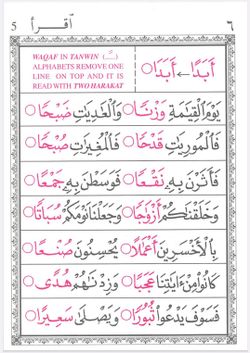 5 اقرأ ٦
WAQAF IN TANWIN (ـًـ)
ALPHABETS REMOVE ONE
LINE ON TOP AND IT IS
READ WITH TWO HARAKAT
أَبَدًا ← أَبَدَا
يَوْمَ الْقِيٰمَةِ وَزْنًا ○ وَالْعٰدِيٰتِ ضَبْحًا ○
فَالْمُورِيٰتِ قَدْحًا ○ فَالْمُغِيرٰتِ صُبْحًا ○
فَأَثَرْنَ بِهِ نَقْعًا ○ فَوَسَطْنَ بِهِ جَمْعًا ○
وَخَلَقْنٰكُمْ أَزْوٰجًا ○ وَجَعَلْنَا نَوْمَكُمْ سُبَاتًا ○
بِالْأَخْسَرِينَ أَعْمٰلًا ○ يُحْسِنُونَ صُنْعًا ○
كَانُوا مِنْ ءَايٰتِنَا عَجَبًا ○ وَزِدْنٰهُمْ هُدًى ○
فَسَوْفَ يَدْعُوا ثُبُورًا ○ وَيَصْلَىٰ سَعِيرًا ○